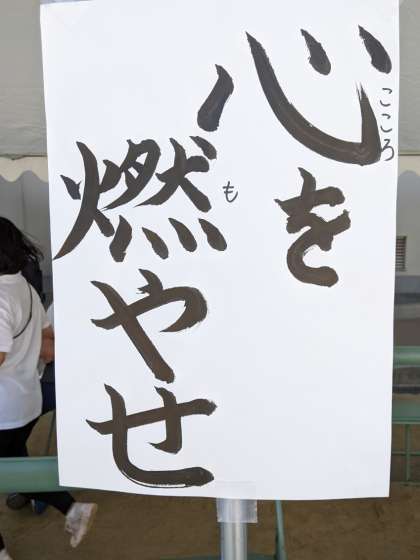 心を
こころ
燃やせ
も